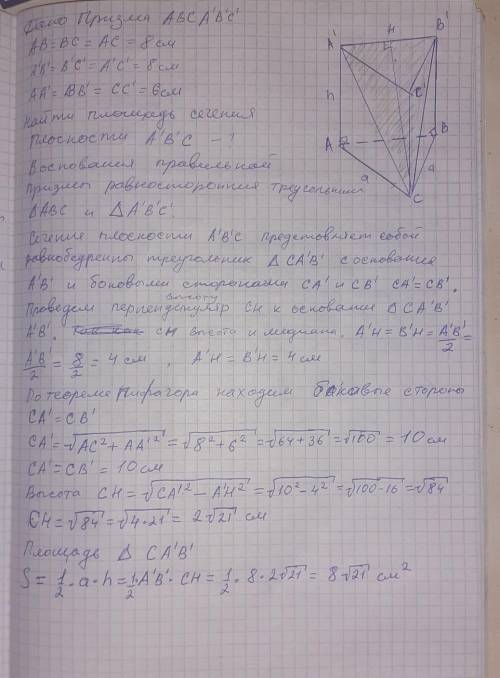 Дано Призма ABCA'B'C'
AB = BC = AC = 8 см
A'B' = B'C' = A'C' = 8 см
AA' = BB' = CC' = 6 см
Найти площадь сечения
плоскости A'B'C - ?
В основания правильной
призмы равносторонния треугольники
ΔABC и ΔA'B'C'.
Сечение плоскости A'B'C представляет собой
равнобедренны треугольник ΔCA'B' с основания
A'B' и боковыми сторонами CA' и CB' CA' = CB'.
высоту
Проведем перпендикуляр CH к основания ΔCA'B'
A'B'. CH высота и медиана. A'H = B'H = A'B'/2 =
A'B'/2 = 8/2 = 4 см, A'H = B'H = 4 см
По теореме Пифагора находем бокавые стороны
CA' = CB'
CA' = √AC² + AA'² = √8² + 6² = √64 + 36 = √100 = 10 см
CA' = CB' = 10 см
Высота CH = √CA'² - A'H² = √10² - 4² = √100 - 16 = √84
CH = √84 = √4·21 = 2√21 см
Площадь Δ CA'B'
S = 1/2 · a · h = 1/2 A'B' · CH = 1/2 · 8 · 2√21 = 8√21 см²
H
B'
A'
C'
h
A
B
a
a
C